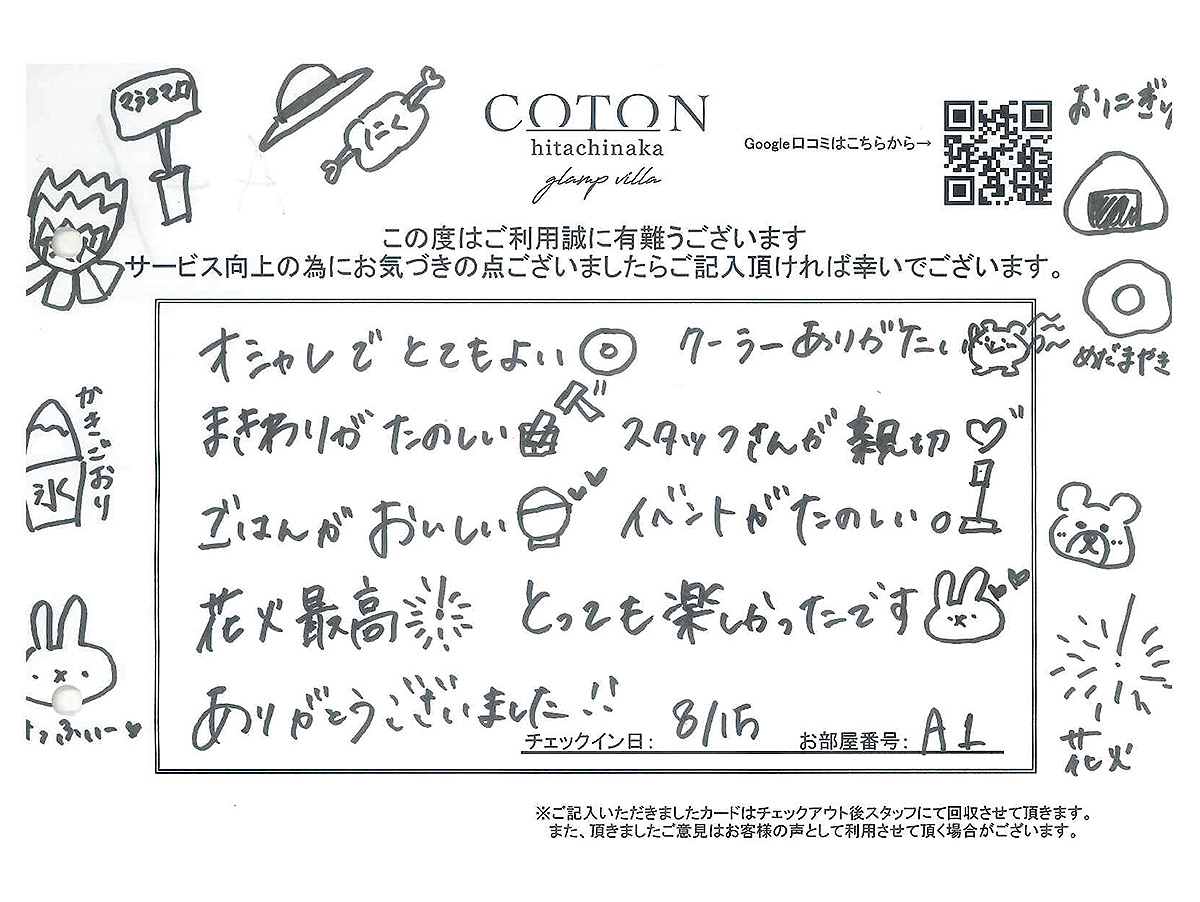 マシュマロ
にく
COTON
hitachinaka
glamp villa
Google口コミはこちらから→
おにぎり
この度はご利用誠に有難うございます
サービス向上の為にお気づきの点ございましたらご記入頂ければ幸いでございます。
オシャレで とてもよい
クーラーありがたい
めだまやき
かきごおり
氷
まきわりが たのしい
スタッフさんが 親切
ごはんが おいしい
イベントが たのしい
花火 最高
とっても 楽しかったです
ありがとうございました!!
チェックイン日: 8/15 お部屋番号: A1
花火
※ご記入いただきましたカードはチェックアウト後スタッフにて回収させて頂きます。
また、頂きましたご意見はお客様の声として利用させて頂く場合がございます。